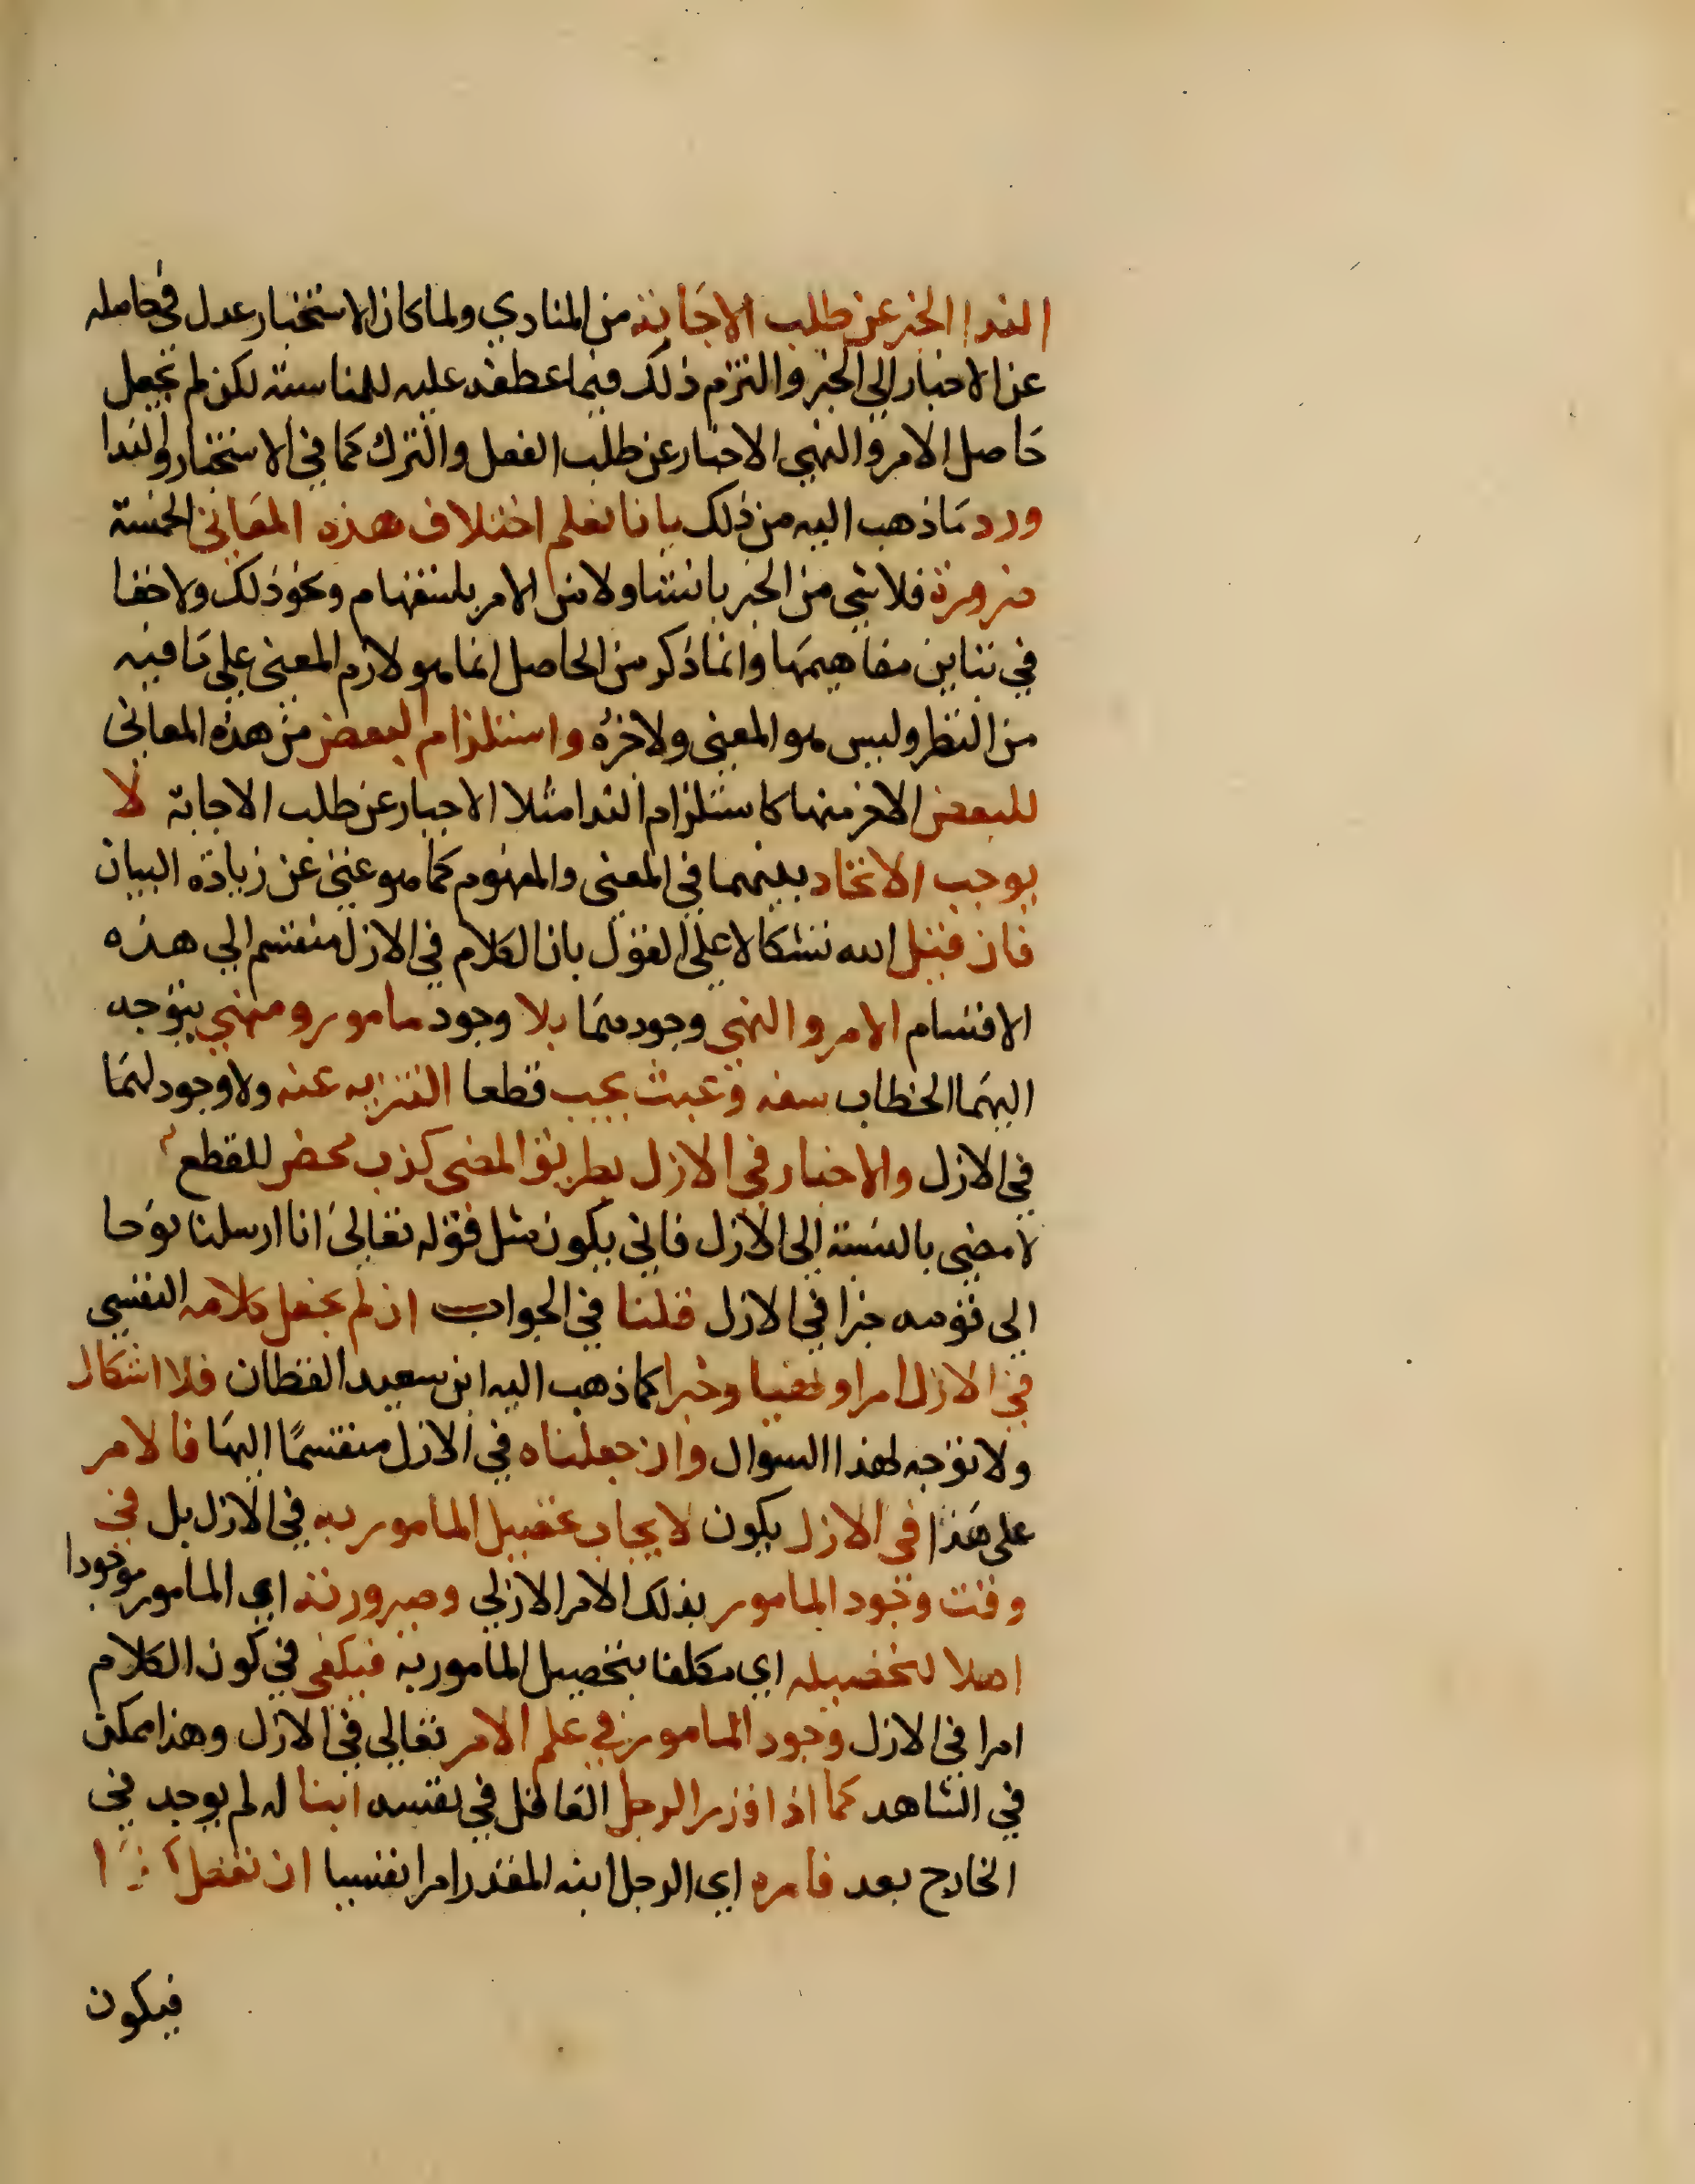 الندا الخبر عن طلب الاجابة من المنادي ولما كان الاستخبار عدل في حاصله
عن الاخبار الي الخبر والتزم ذلك فيما عطفه عليه للمناسبة لكن لم يجعل
حاصل الامر والنهي الاخبار عن طلب الفعل والترك كما في الاستخبار والندا
ورد ما ذهب اليه من ذلك بانا نعلم اختلاف هذه المعاني الخمسة
ضرورة فلا شي من الخبر بانشا ولا من الامر باستفهام ونحو ذلك ولا خفا
في تباين مفاهيمها وانما ذكر من الحاصل انما هو لازم المعني علي ما فيه
من النظر وليس هو المعني ولا جزؤه واستلزام البعض من هذه المعاني
للبعض الاخر منها كاستلزام الندا مثلا الاخبار عن طلب الاجابة لا
يوجب الاتحاد بينهما في المعني والمفهوم كما هو غني عن زيادة البيان
فان قيل استشكالا علي القول بان الكلام في الازل منقسم الي هذه
الاقسام الامر والنهي وجودهما بلا وجود مامور ومنهي يتوجه
اليهما الخطاب سفه وعبث يجب قطعا التنزيه عنه ولا وجود لهما
في الازل والاخبار في الازل بطريق المضي كذب محض للقطع
لا مضي بالنسبة الي الازل فاني يكون مثل قوله تعالي انا ارسلنا نوحا
الي قومه خبرا في الازل قلنا في الجواب ان لم نجعل كلامه النفسي
في الازل امرا ونهيا وخبرا كما ذهب اليه ابن سعيد القطان فلا اشكال
ولا توجه لهذا السوال وان جعلناه في الازل منقسمًا اليها فالامر
علي هذا في الازل يكون لايجاب تحصيل المامور به في الازل بل في
وقت وجود المامور بذلك الامر الازلي وصيرورته اي المامور موجودا
اهلا لتحصيله اي مكلفا بتحصيل المامور به فيكفي في كون الكلام
امرا في الازل وجود المامور في علم الامر تعالي في الازل وهذا ممكن
في الشاهد كما اذا قدر الرجل العاقل في نفسه ابنا له لم يوجد في
الخارج بعد فامره اي الرجل ابنه المقدر امرا نفسيا ان تفعل كذا
فيكون